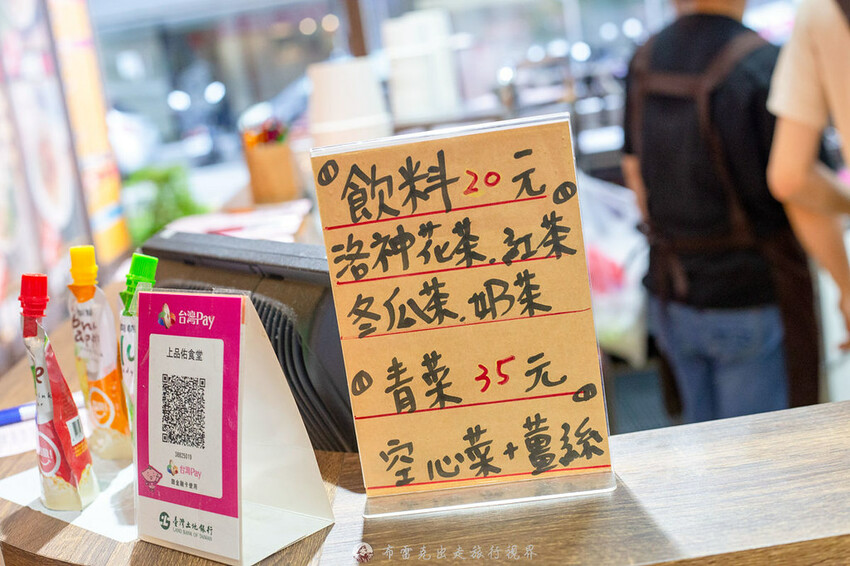 飲料20元
洛神花茶.紅茶
冬瓜茶.奶茶
青菜35元
空心菜+薑絲
台灣Pay
上品佑食堂
台灣Pay
臺灣土地銀行
LAND BANK OF TAIWAN
布雷克出走旅行視界